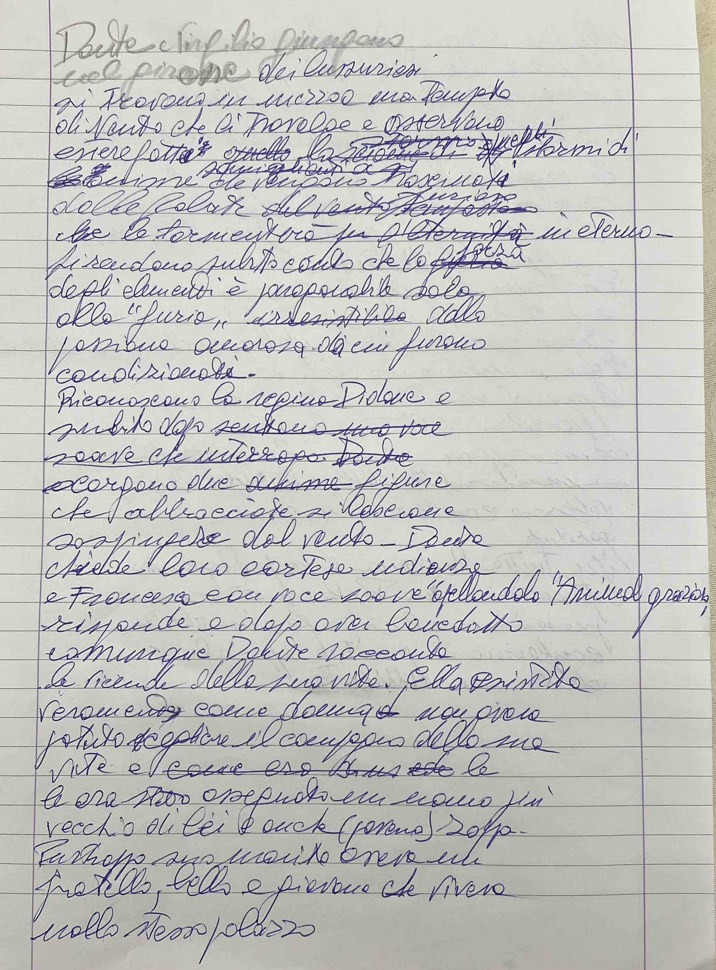 Dante e Virgilio giungono
nel girone dei lussuriosi
si trovano in mezzo una tempesta
di vento che li travolge e osservano
essere fatta quello la di stormi di
anime che vengono trascinate
dalle folate del vento furioso tempestoso
che le tormenterà per l'eternità in eterno -
si rendono subito conto che la forza
degli elementi è paragonabile solo
alla "furia" irresistibile della
passione amorosa da cui furono
condizionati.
Riconoscono la regina Didone e
subito dopo sentono una voce
soave che interrompe Dante
scorgono due anime figure
che abbracciate si lasciano
sospingere dal vento - Dante
chiede loro cortese udienza
e Francesca con voce soave apellandolo "Animal grazioso,
risponde e dopo aver benedetto
comunque Dante racconta
le vicende della sua vita. Ella esistita
veramente come donna non aveva
potuto scegliere il compagno della sua
vita e come era le
le era stato assegnato un uomo più
vecchio di lei e anche (pareva) zoppo.
Purtroppo suo marito aveva un
fratello, bello e giovane che viveva
nello stesso palazzo